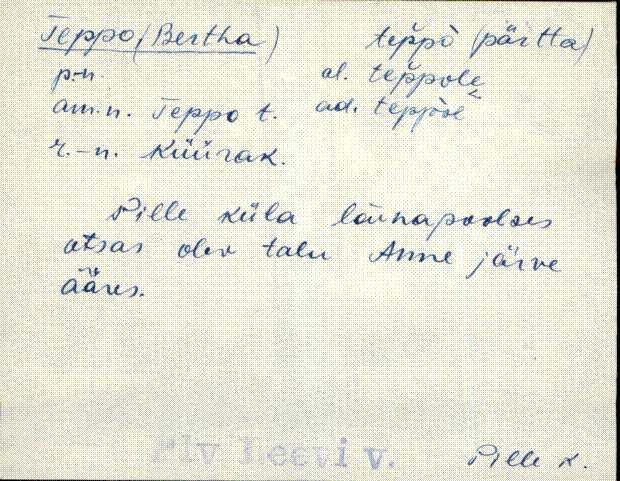 Teppo (Bertha) teppò (pärtta)
p.-n. al. teppole
am.n. Teppo t. ad. teppòl
r.-n. Küürak.
Pille küla lõunapoolses
otsas olev talu Anne järve
ääres.
Plv Leevi v. Pille k.